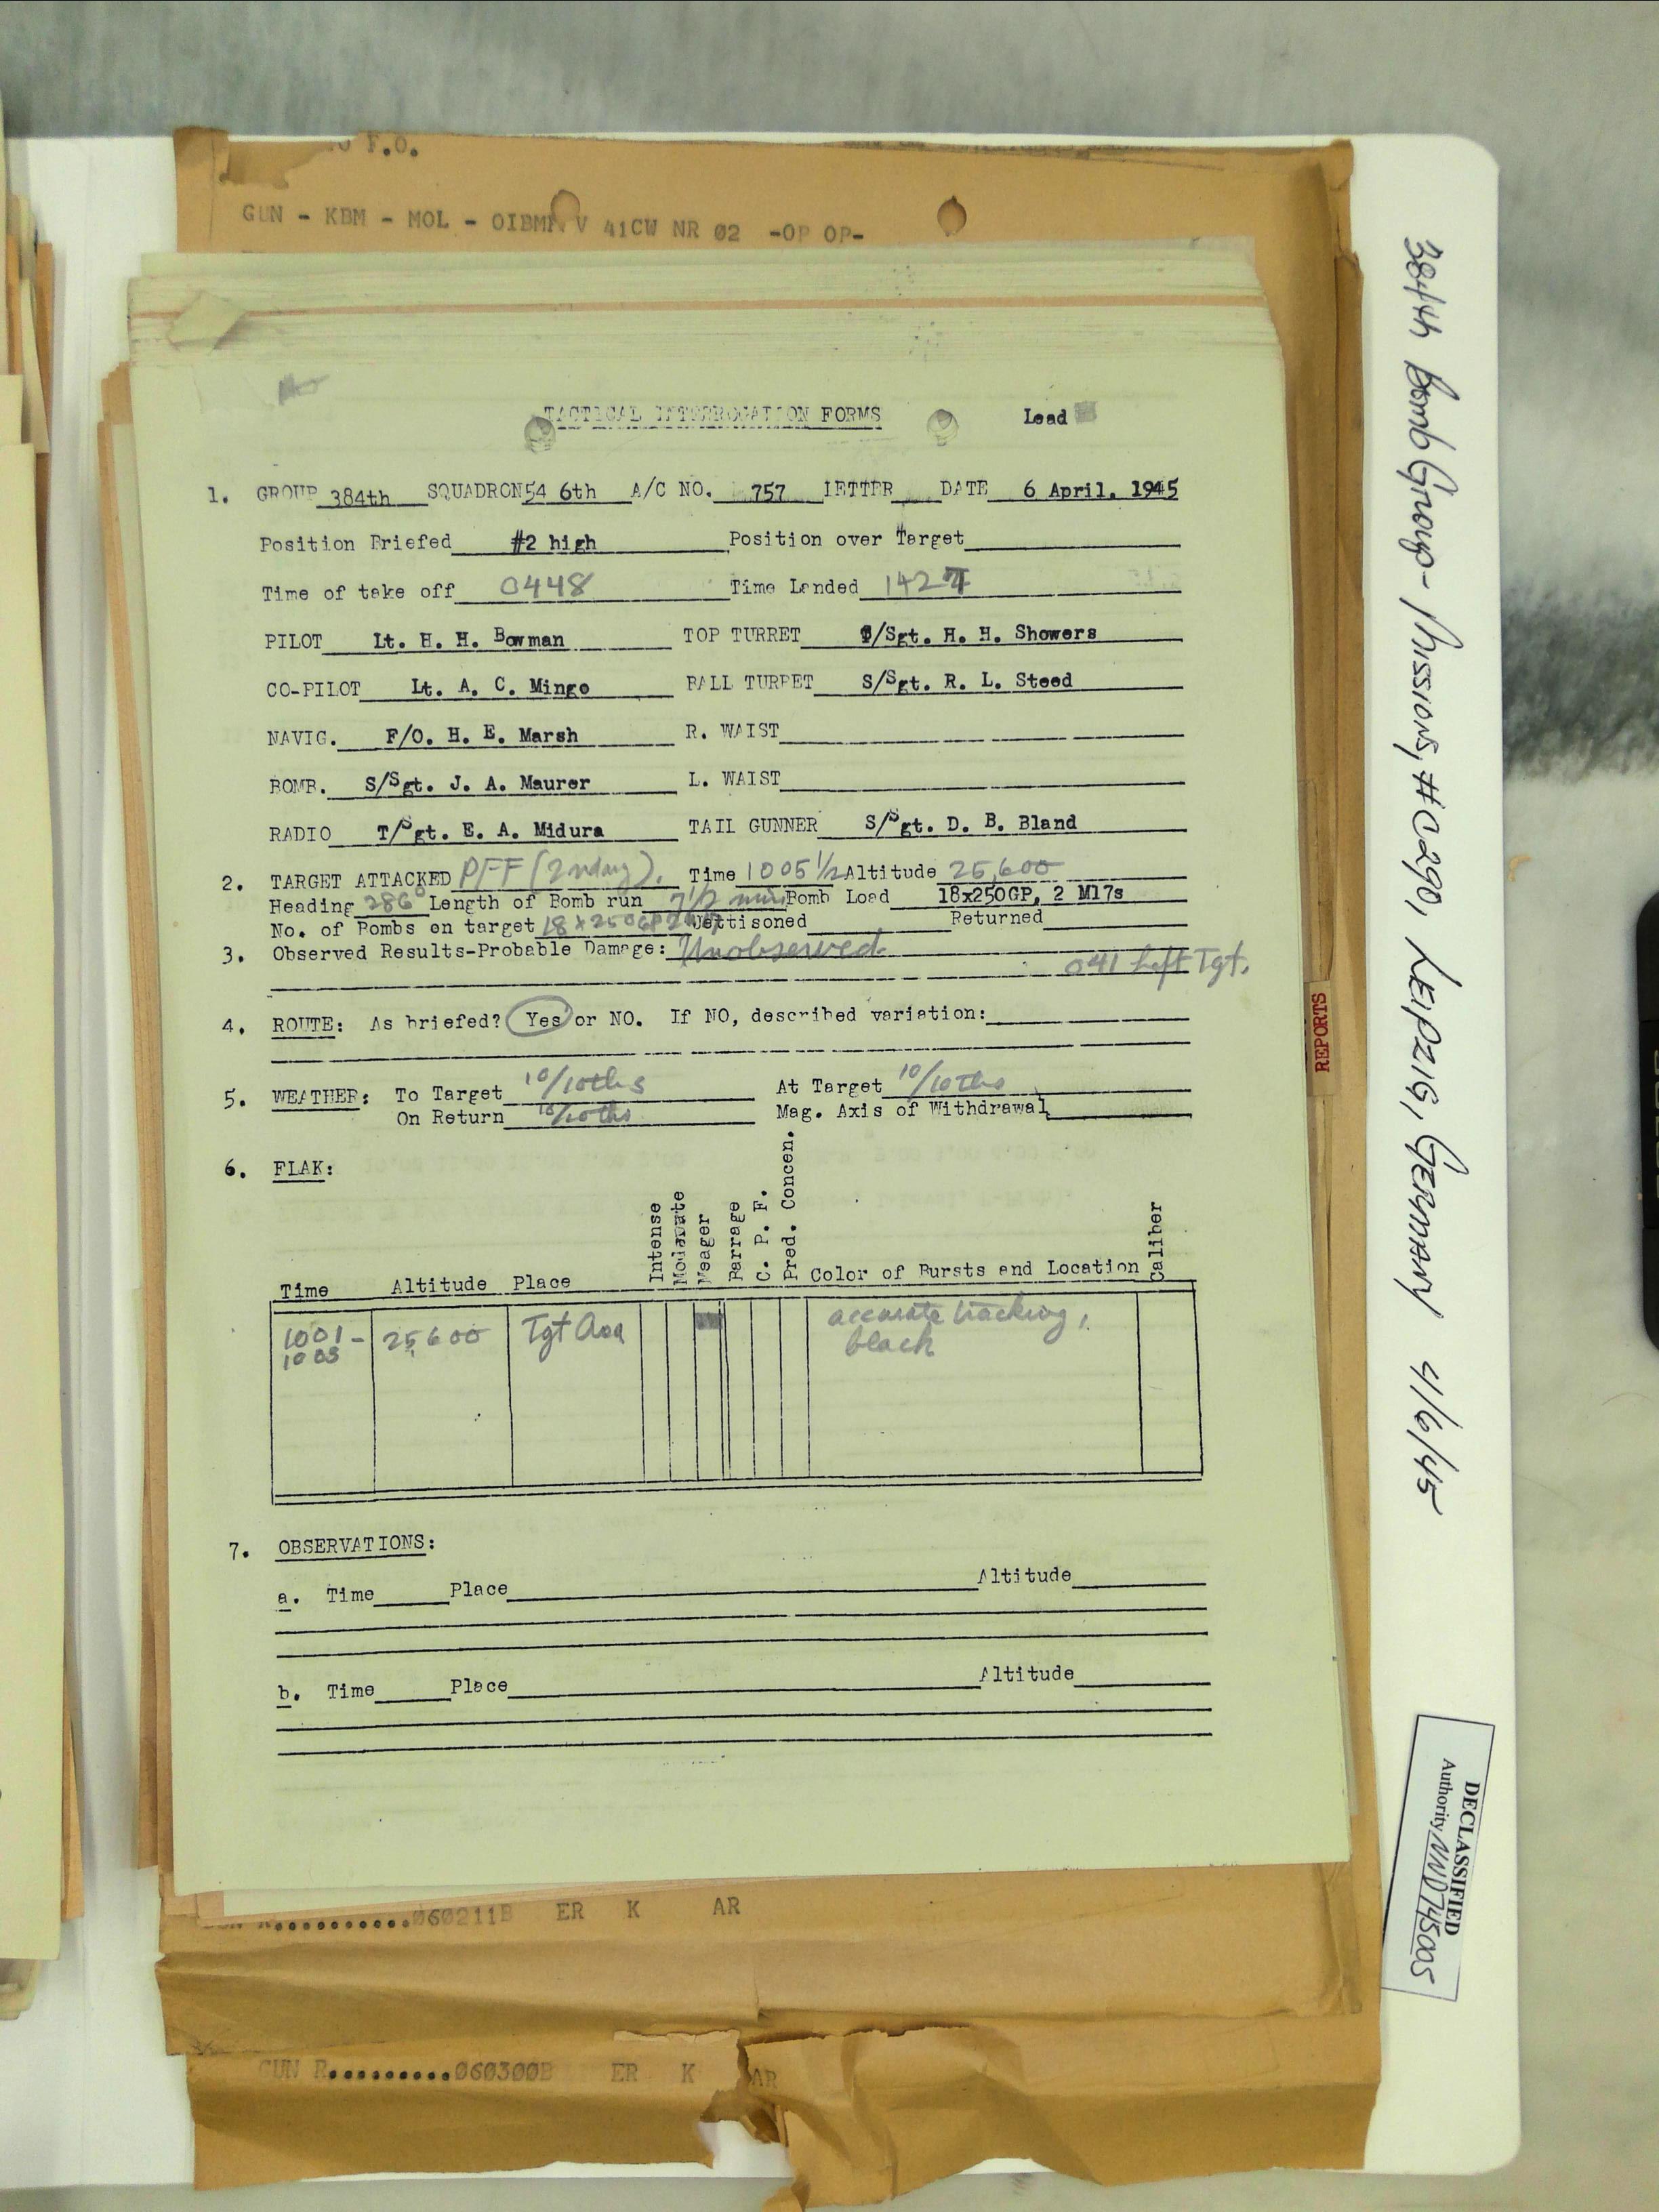 F.O.
GUN - KBM - MOL - OIBMN V 41CW NR 02 -OP OP-
TACTICAL INTERROGATION FORMS Lead
1. GROUP 384th SQUADRON 546th A/C NO. 757 LETTER DATE 6 April, 1945
Position Briefed #2 high Position over Target
Time of take off 0448 Time Landed 1427
PILOT Lt. H. H. Bowman TOP TURRET T/Sgt. H. H. Showers
CO-PILOT Lt. A. C. Mingo BALL TURRET S/Sgt. R. L. Steed
NAVIG. F/O. H. E. Marsh R. WAIST
BOMB. S/Sgt. J. A. Maurer L. WAIST
RADIO T/Sgt. E. A. Midura TAIL GUNNER S/Sgt. D. B. Bland
2. TARGET ATTACKED PFF (2ndary). Time 1005 1/2 Altitude 25,600
Heading 286° Length of Bomb run 7 1/2 min Bomb Load 18x250GP, 2 M17s
No. of Bombs on target 18 x 250GP Jettisoned Returned
3. Observed Results-Probable Damage: Unobserved
041 Left Tgt.
4. ROUTE: As briefed? Yes or NO. If NO, described variation:
5. WEATHER: To Target 10/10ths At Target 10/10ths
On Return 10/10ths Mag. Axis of Withdrawal
6. FLAK:
Time Altitude Place Intense Moderate Meager Barrage C. P. F. Pred. Concen. Color of Bursts and Location Caliber
1001- 25,600 Tgt Area accurate tracking,
1003 black
7. OBSERVATIONS:
a. Time Place Altitude
b. Time Place Altitude
060211B ER K AR
GUN R..........060300B ER K AR
REPORTS
384th Bomb Group - Missions, #C290, LEIPZIG, GERMANY 4/6/45
DECLASSIFIED
Authority NND745005